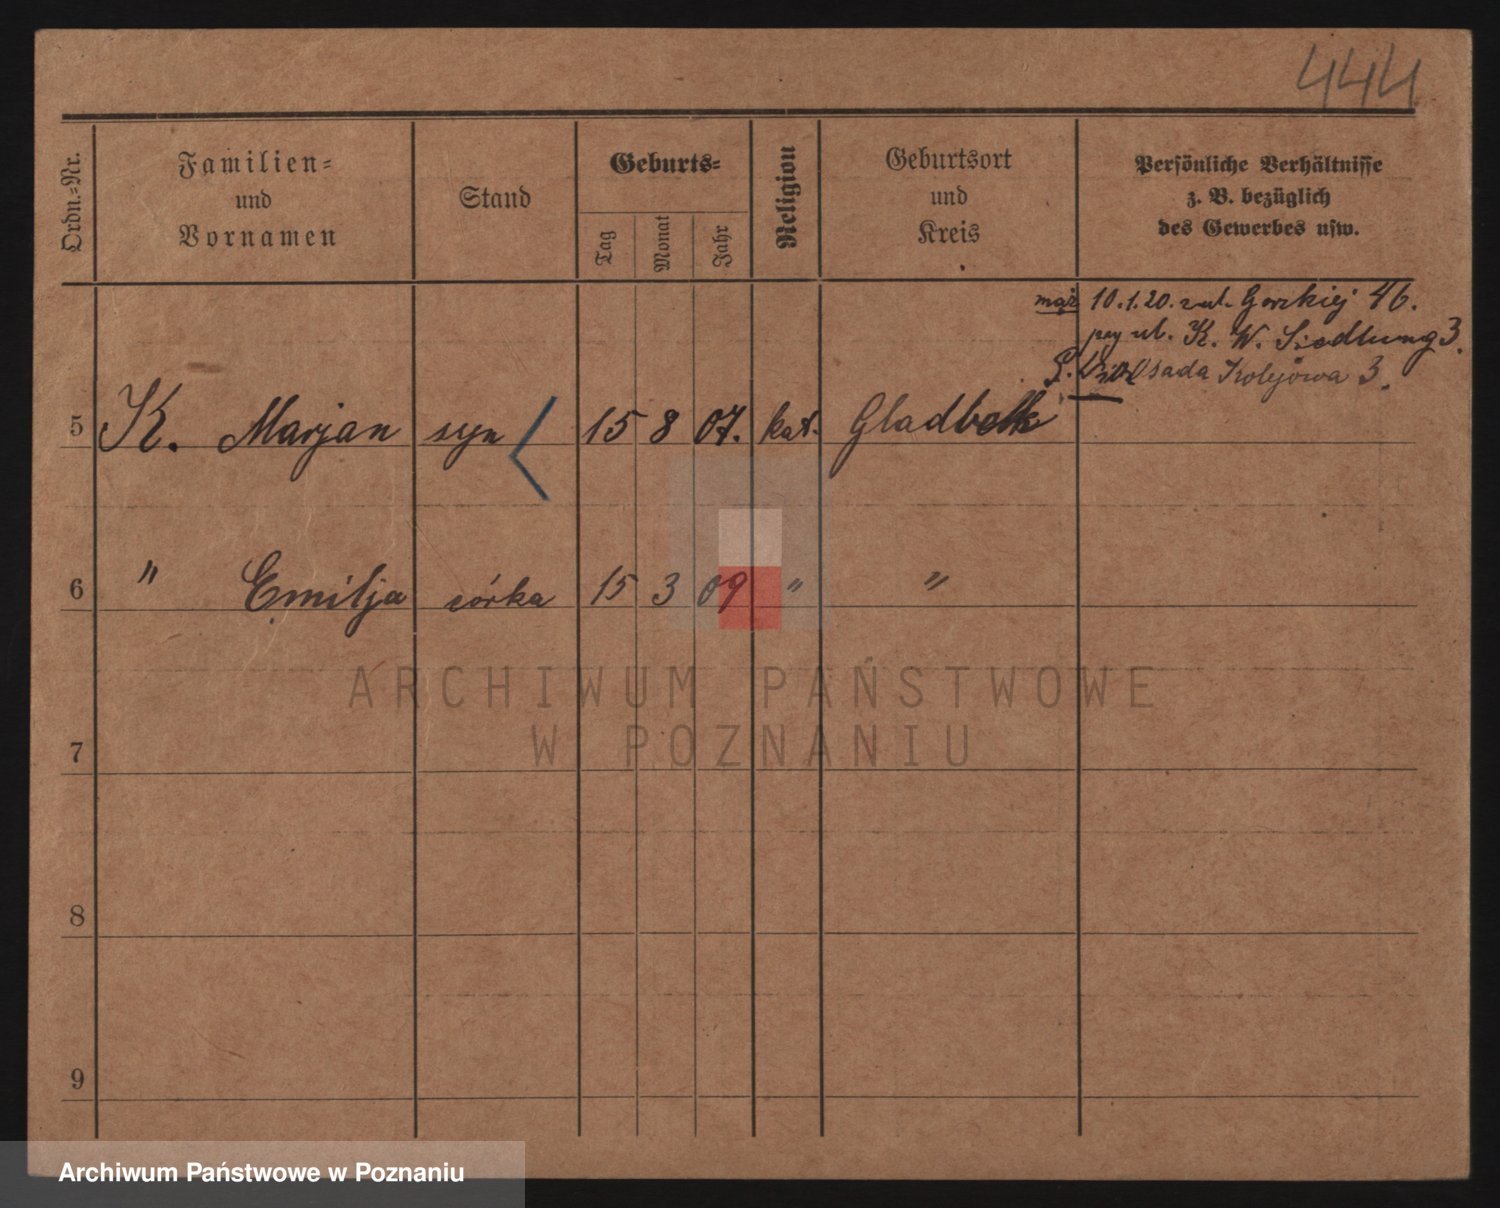 444
Ordn.=Nr.
Familien=
und
Vornamen
Stand
Geburts=
Tag
Monat
Jahr
Religion
Geburtsort
und
Kreis
Persönliche Verhältnisse
z. B. bezüglich
des Gewerbes usw.
mąż 10.1.20. z ul. Gorzkiej 46.
przy ul. K. W. Siedlung 3.
Osada Kolejowa 3.
5 K. Marjan syn 15 8 07. kat. Gladbek
6 " Emilja córka 15 3 09 " "
7
8
9
ARCHIWUM PAŃSTWOWE
W POZNANIU
Archiwum Państwowe w Poznaniu